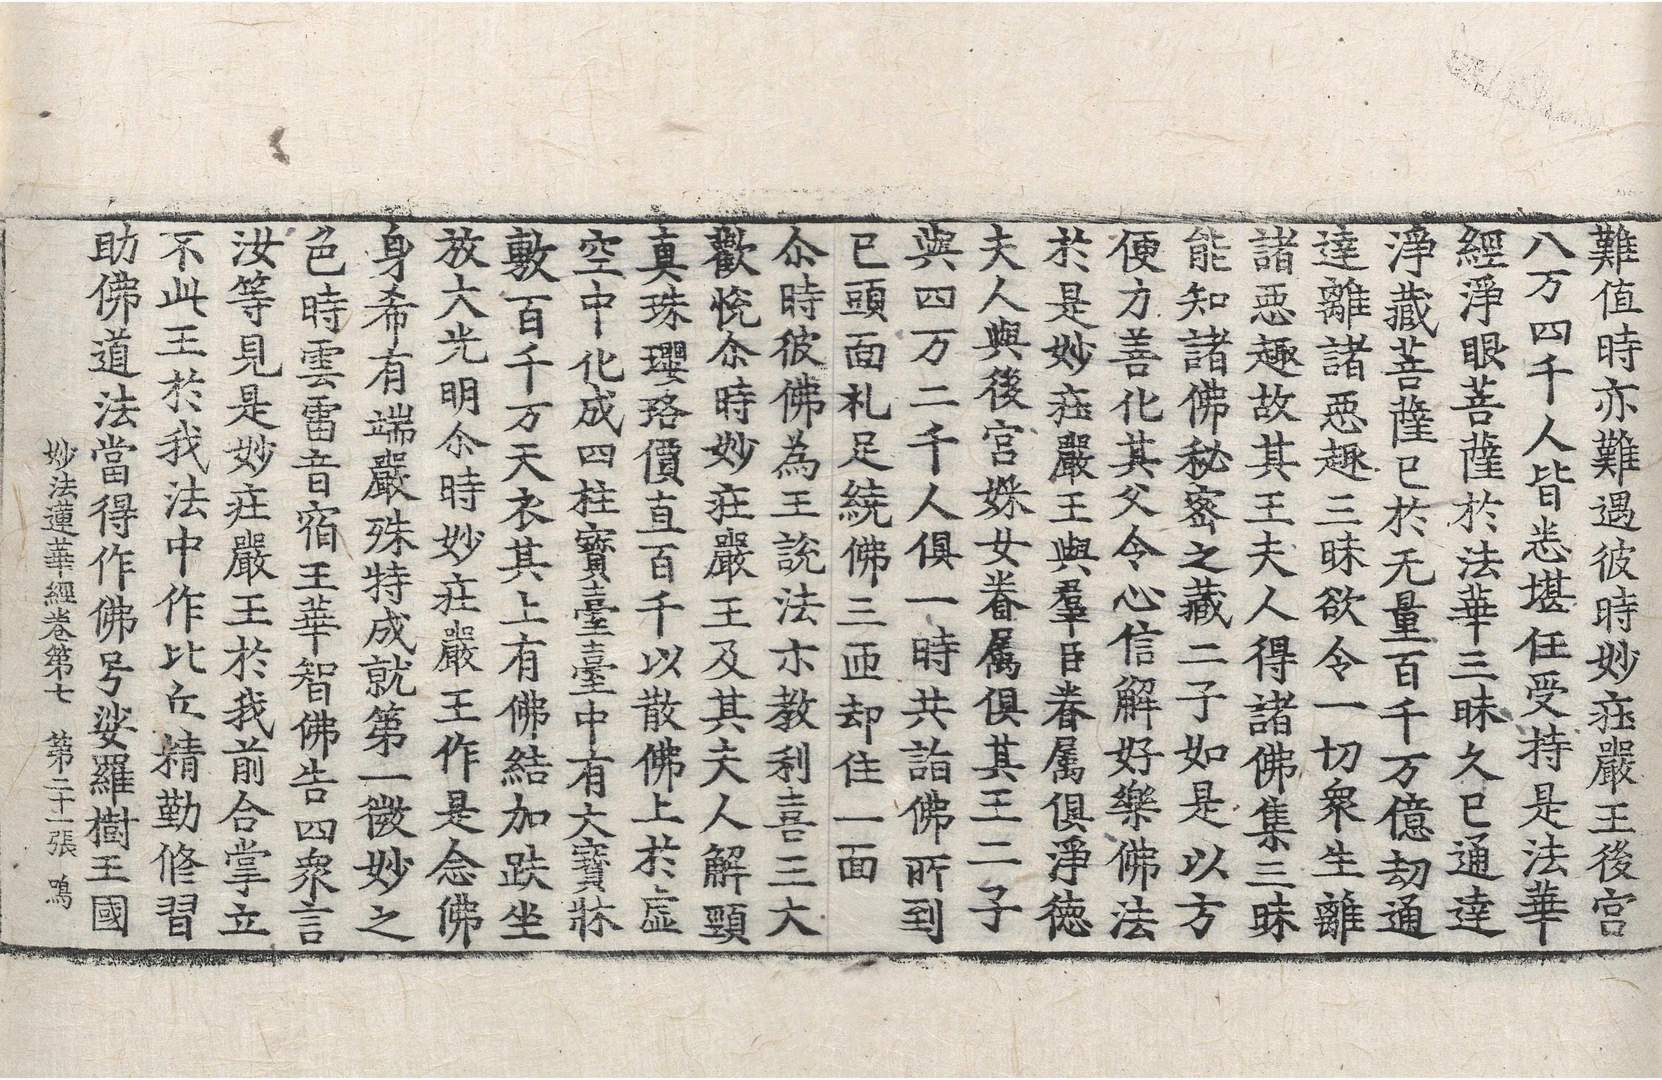 難值時亦難遇彼時妙㽵嚴王後宮
八万四千人皆悉堪任受持是法華
經淨眼菩薩於法華三昧久已通達
淨藏菩薩已於无量百千万億劫通
達離諸惡趣三昧欲令一切衆生離
諸惡趣故其王夫人得諸佛集三昧
能知諸佛秘密之藏二子如是以方
便力善化其父令心信解好樂佛法
於是妙㽵嚴王與羣臣眷属俱淨德
夫人與後宮婇女眷属俱其王二子
與四万二千人俱一時共詣佛所到
已頭面礼足繞佛三匝却住一面
尒時彼佛為王說法示教利喜王大
歡悅尒時妙㽵嚴王及其夫人解頸
真珠瓔珞價直百千以散佛上於虛
空中化成四柱寶臺臺中有大寶牀
敷百千万天衣其上有佛結加趺坐
放大光明尒時妙㽵嚴王作是念佛
身希有端嚴殊特成就第一微妙之
色時雲雷音宿王華智佛告四衆言
汝等見是妙㽵嚴王於我前合掌立
不此王於我法中作比丘精勤修習
助佛道法當得作佛号娑羅樹王國
妙法蓮華經卷第七 第二十一張 鳴